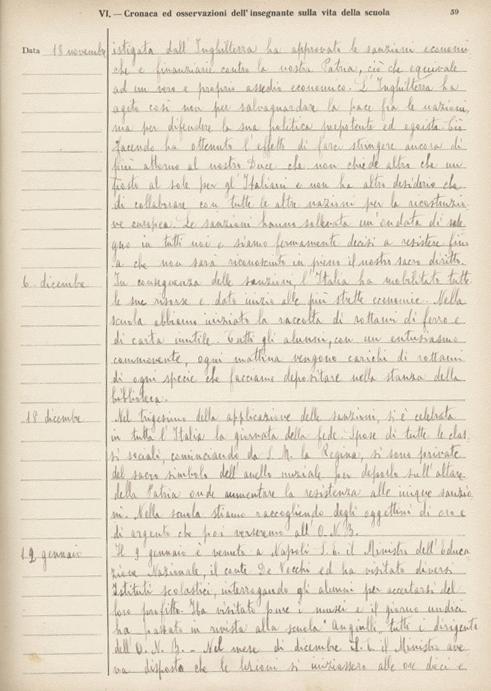 VI. — Cronaca ed osservazioni dell'insegnante sulla vita della scuola 59
Data 18 novembre istigata dall'Inghilterra ha approvato le sanzioni economi
che e finanziarie contro la nostra Patria, ciò che equivale
ad un vero e proprio assedio economico. L'Inghilterra ha
agito così non per salvaguardare la pace fra le nazioni,
ma per difendere la sua politica prepotente ed egoista. Ciò
facendo ha ottenuto l'effetto di farci stringere ancora di
più attorno al nostro Duce che non chiede altro che un
posto al sole per gl'Italiani e non ha altro desiderio che
di collaborare con tutte le altre nazioni per la ricostruzio
ne europea. Le sanzioni hanno sollevata un'ondata di sde
gno in tutti noi e siamo fermamente decisi a resistere fin
a che non sarà riconosciuto in pieno il nostro sacro diritto.
6. dicembre In conseguenza delle sanzioni, l'Italia ha mobilitato tutte
le sue risorse e dato inizio alle più strette economie. Nella
scuola abbiamo iniziato la raccolta di rottami di ferro e
di carta inutile. Tutti gli alunni, con un entusiasmo
commovente, ogni mattina vengono carichi di rottami
di ogni specie che facciamo depositare nella stanza della
biblioteca.
18 dicembre Nel trigesimo della applicazione delle sanzioni, si è celebrata
in tutta l'Italia la giornata della fede. Spose di tutte le clas
si sociali, cominciando da S. M. la Regina, si sono private
del sacro simbolo dell'anello nuziale per deporlo sull'altare
della Patria onde aumentare la resistenza alle inique sanzio
ni. Nella scuola stiamo raccogliendo degli oggettini di oro e
di argento che poi verseremo all'O. N. B.
12 gennaio Il 9 gennaio è venuto a Napoli S. E. il Ministro dell'Educa
zione Nazionale, il conte De Vecchi ed ha visitato diversi
Istituti scolastici, interrogando gli alunni per accertarsi del
loro profitto. Ha visitato pure i musei e il giorno undici
ha passato in rivista alla scuola "Angiulli" tutti i dirigenti
dell'O. N. B. - Nel mese di dicembre S. E. il Ministro ave
va disposto che le lezioni si iniziassero alle ore dieci e